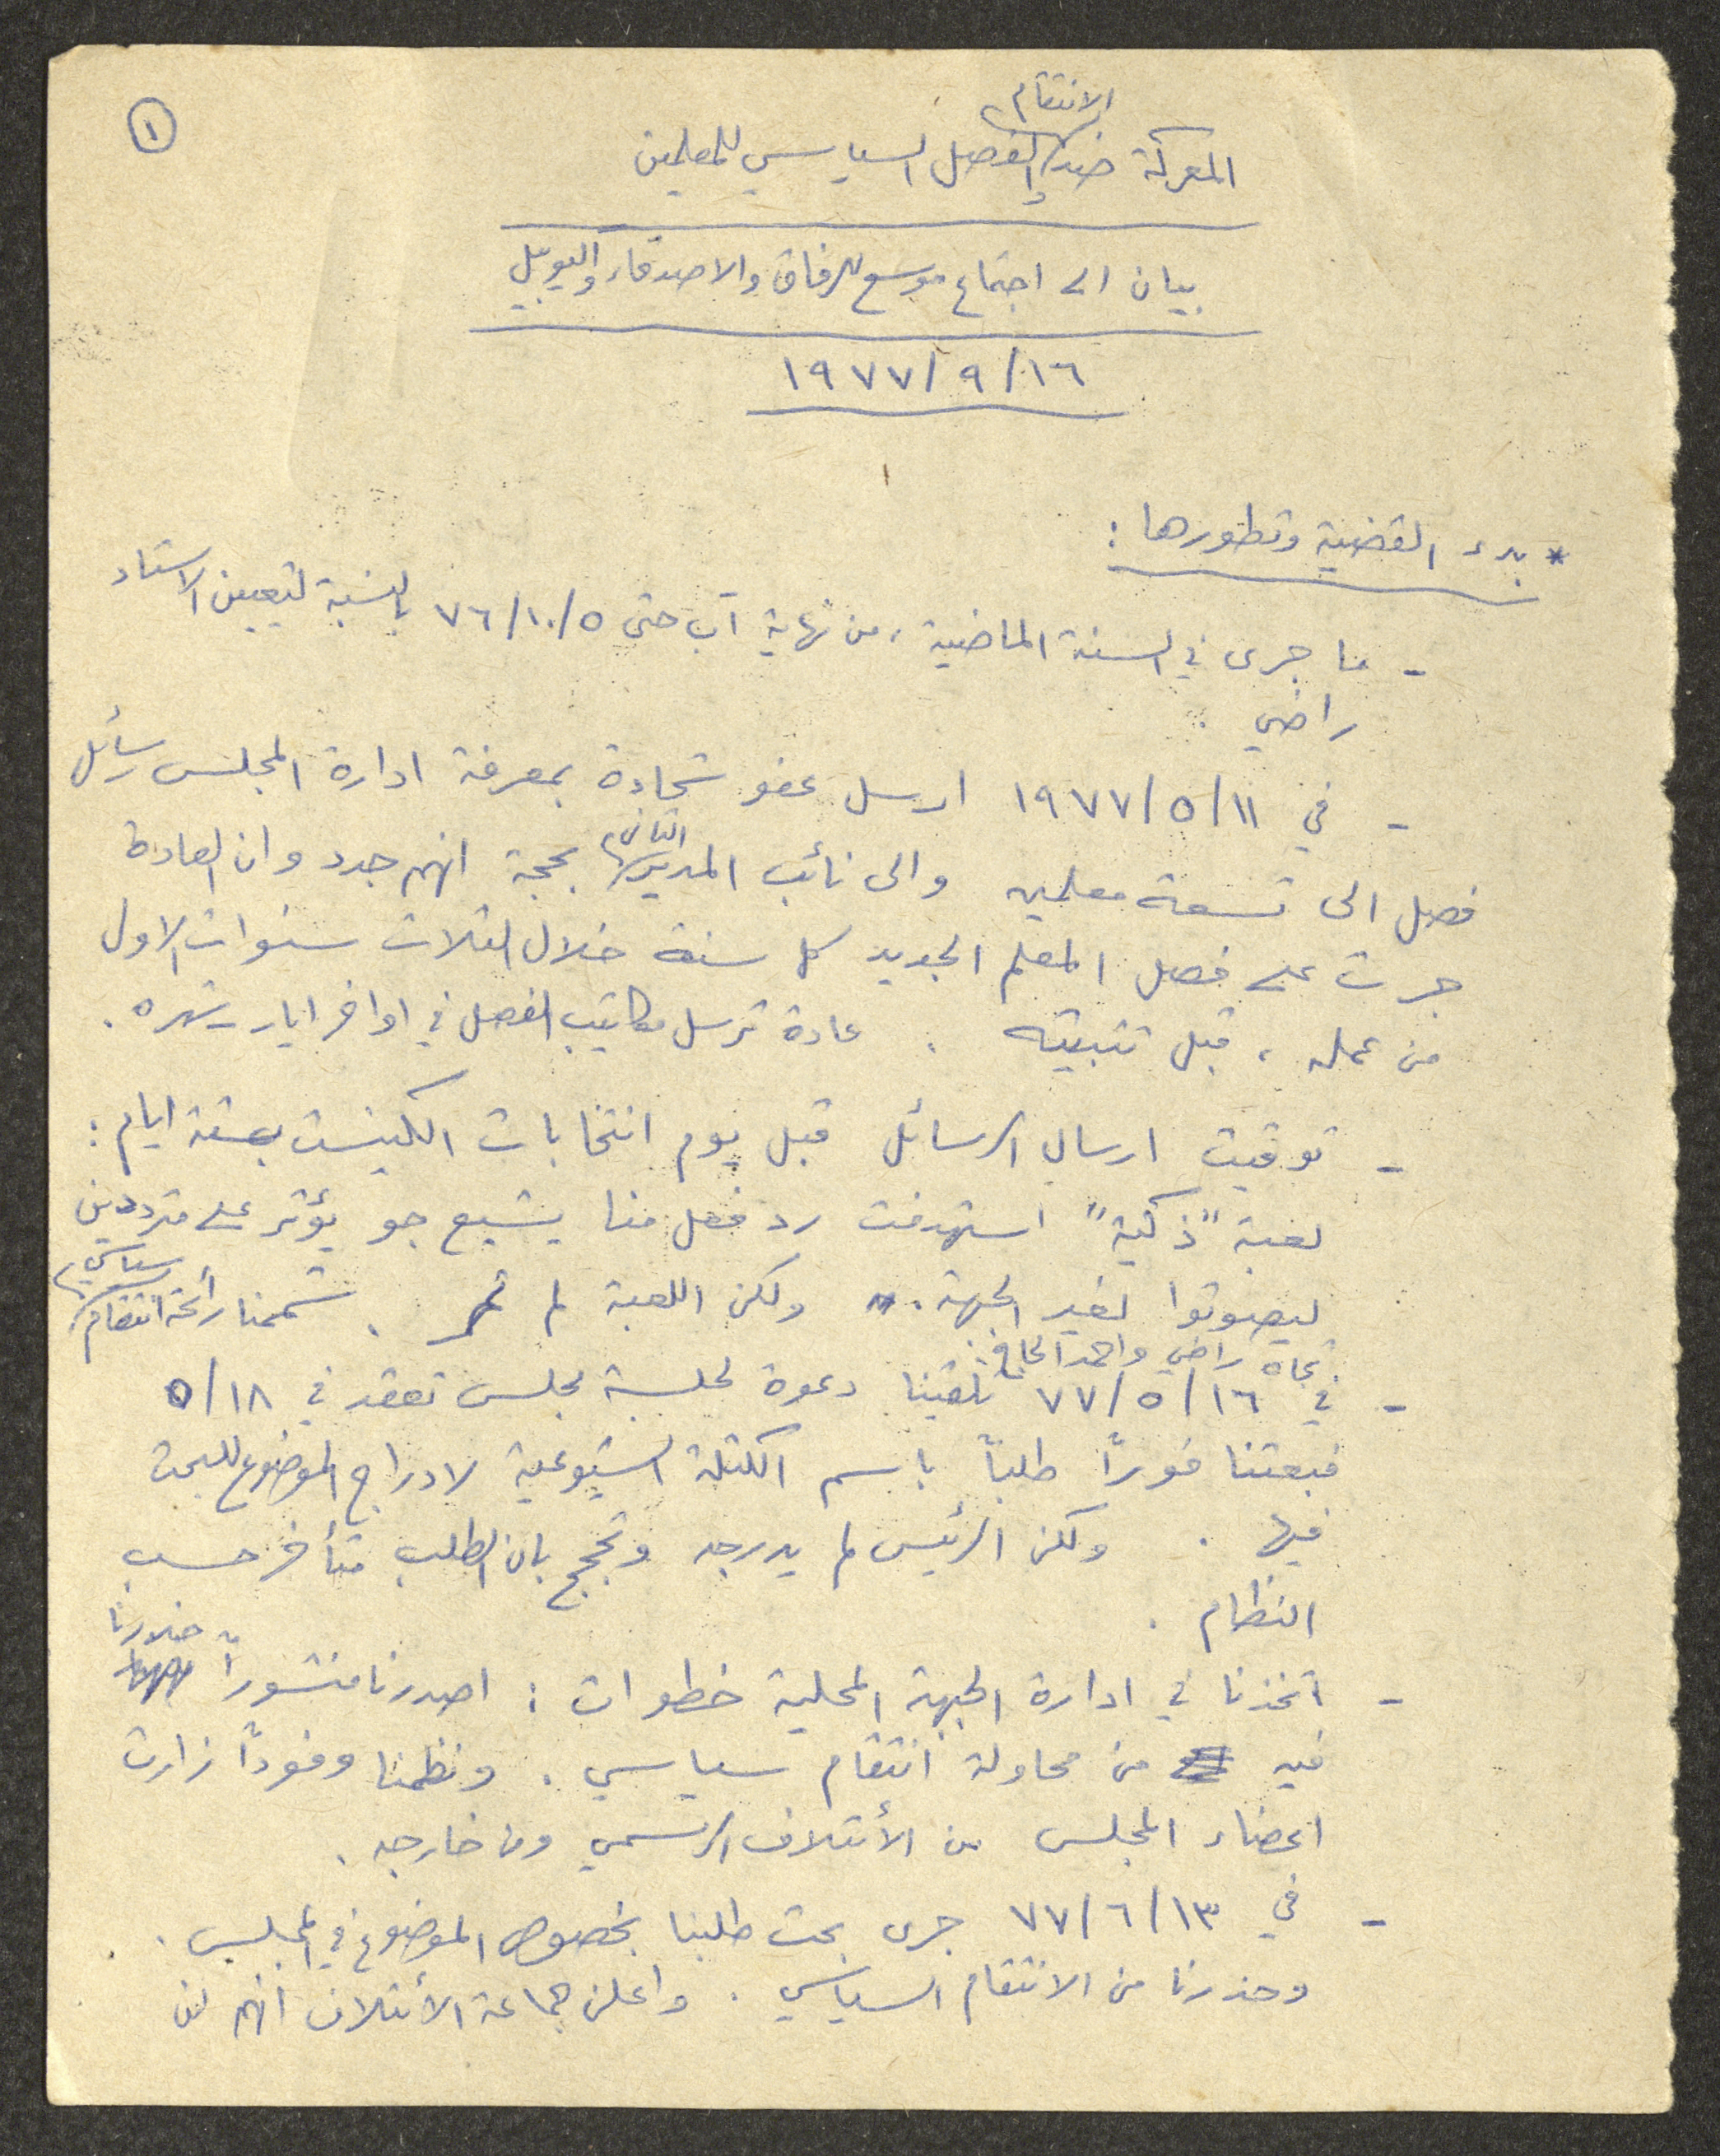 ①
الانتقام
المعركة ضد والفصل السياسي للمعلمين
بيان الى اجتماع موسع للرفاق والاصدقاء واليوبيل
١٦/٩/١٩٧٧
* بدء القضية وتطورها:
- ما جرى في السنة الماضية، من نهاية آب حتى ٥/١٠/٧٦ بالنسبة لتعيين الاستاذ
راضي.
- في ١١/٥/١٩٧٧ ارسل عفو شحادة بمعرفة ادارة المجلس رسائل
فصل الى تسعة معلمين والى نائب المدير الثانوي بحجة انهم جدد وان العادة
جرت على فصل المعلم الجديد كل سنة خلال الثلاث سنوات الاولى
من عمله، قبل تثبيته. عادة ترسل مكاتيب الفصل في اواخر ايار -
- توقيت ارسال الرسائل قبل يوم انتخابات الكنيست بستة ايام:
لعبة "ذكية" استهدفت رد فعل منا يشيع جو يؤثر على مترددين
ليصوتوا لغير الجبهة. ولكن اللعبة لم تمر. شممنا رائحة انتقام سياسي
تجاه راضي واحمد الحاج.
- في ١٦/٥/٧٧ تلقينا دعوة لجلسة مجلس تعقد في ١٨/٥
فبعثنا فوراً طلباً باسم الكتلة الشيوعية لادراج الموضوع للبحث
فيها. ولكن الرئيس لم يدرجه وتحجج بان الطلب متأخر حسب
النظام.
- اتخذنا في ادارة الجبهة المحلية خطوات: اصدرنا منشوراً حذرنا
فيه من محاولة انتقام سياسي. ونظمنا وفوداً زارت
اعضاء المجلس من الأئتلاف الرسمي ومن خارجه.
- في ١٣/٦/٧٧ جرى بحث طلبنا بخصوص الموضوع في المجلس.
وحذرنا من الانتقام السياسي. واعلن جماعة الأئتلاف انهم لن